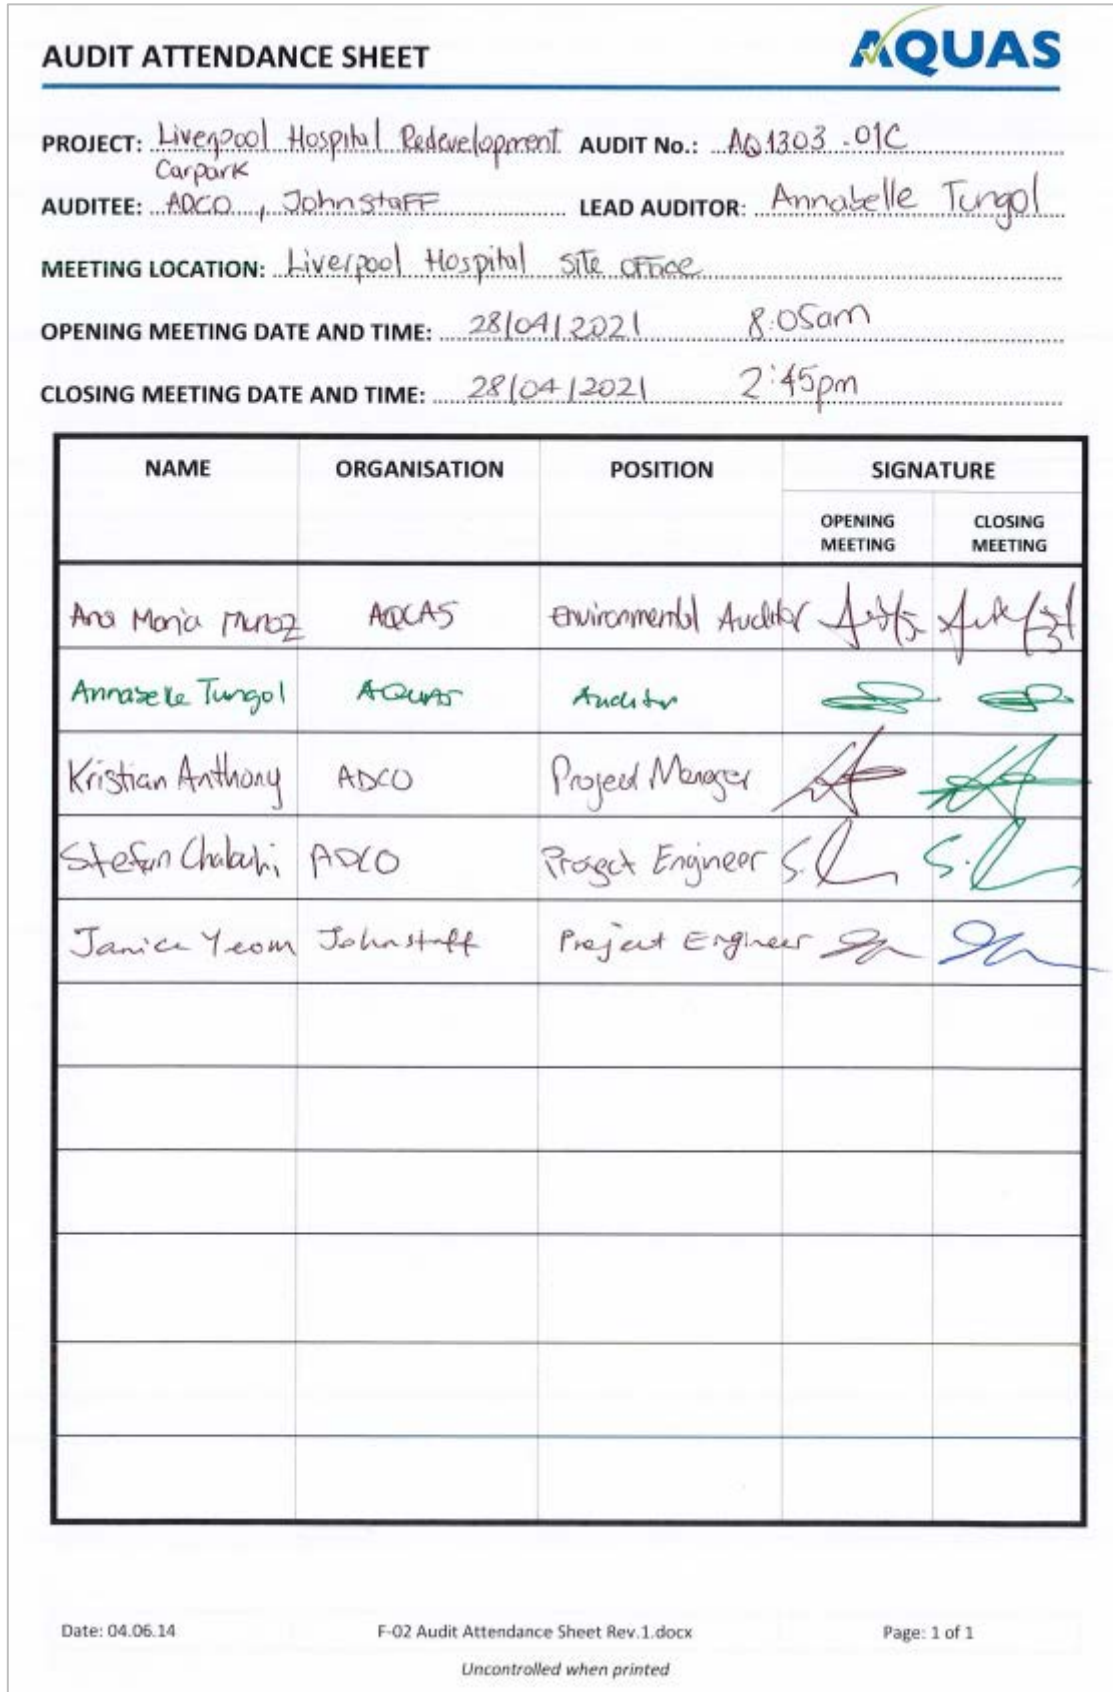 AUDIT ATTENDANCE SHEET
AQUAS
PROJECT: Liverpool Hospital Redevelopment AUDIT No.: AQ1303-01C
Carpark
AUDITEE: ADCO, Johnstaff LEAD AUDITOR: Annabelle Tungol
MEETING LOCATION: Liverpool Hospital site office
OPENING MEETING DATE AND TIME: 28/04/2021 8:05am
CLOSING MEETING DATE AND TIME: 28/04/2021 2:45pm
NAME ORGANISATION POSITION SIGNATURE
OPENING MEETING CLOSING MEETING
Ana Maria Munoz AQUAS Environmental Auditor
Annabelle Tungol AQUAS Auditor
Kristian Anthony ADCO Project Manager
Stefan ADCO Project Engineer
Janice Yeom Johnstaff Project Engineer
Date: 04.06.14 F-02 Audit Attendance Sheet Rev.1.docx Page: 1 of 1
Uncontrolled when printed